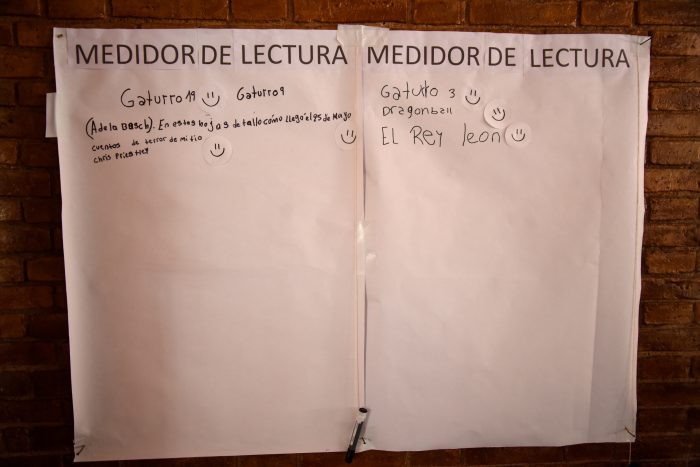 MEDIDOR DE LECTURA
Gaturro 19 Gaturro 9
(Adela Basch). En estas hojas detallo cómo llegó el 25 de Mayo
cuentos de terror de mi tio
Chris Priestley
MEDIDOR DE LECTURA
Gaturro 3
Dragon ball
EL Rey leon